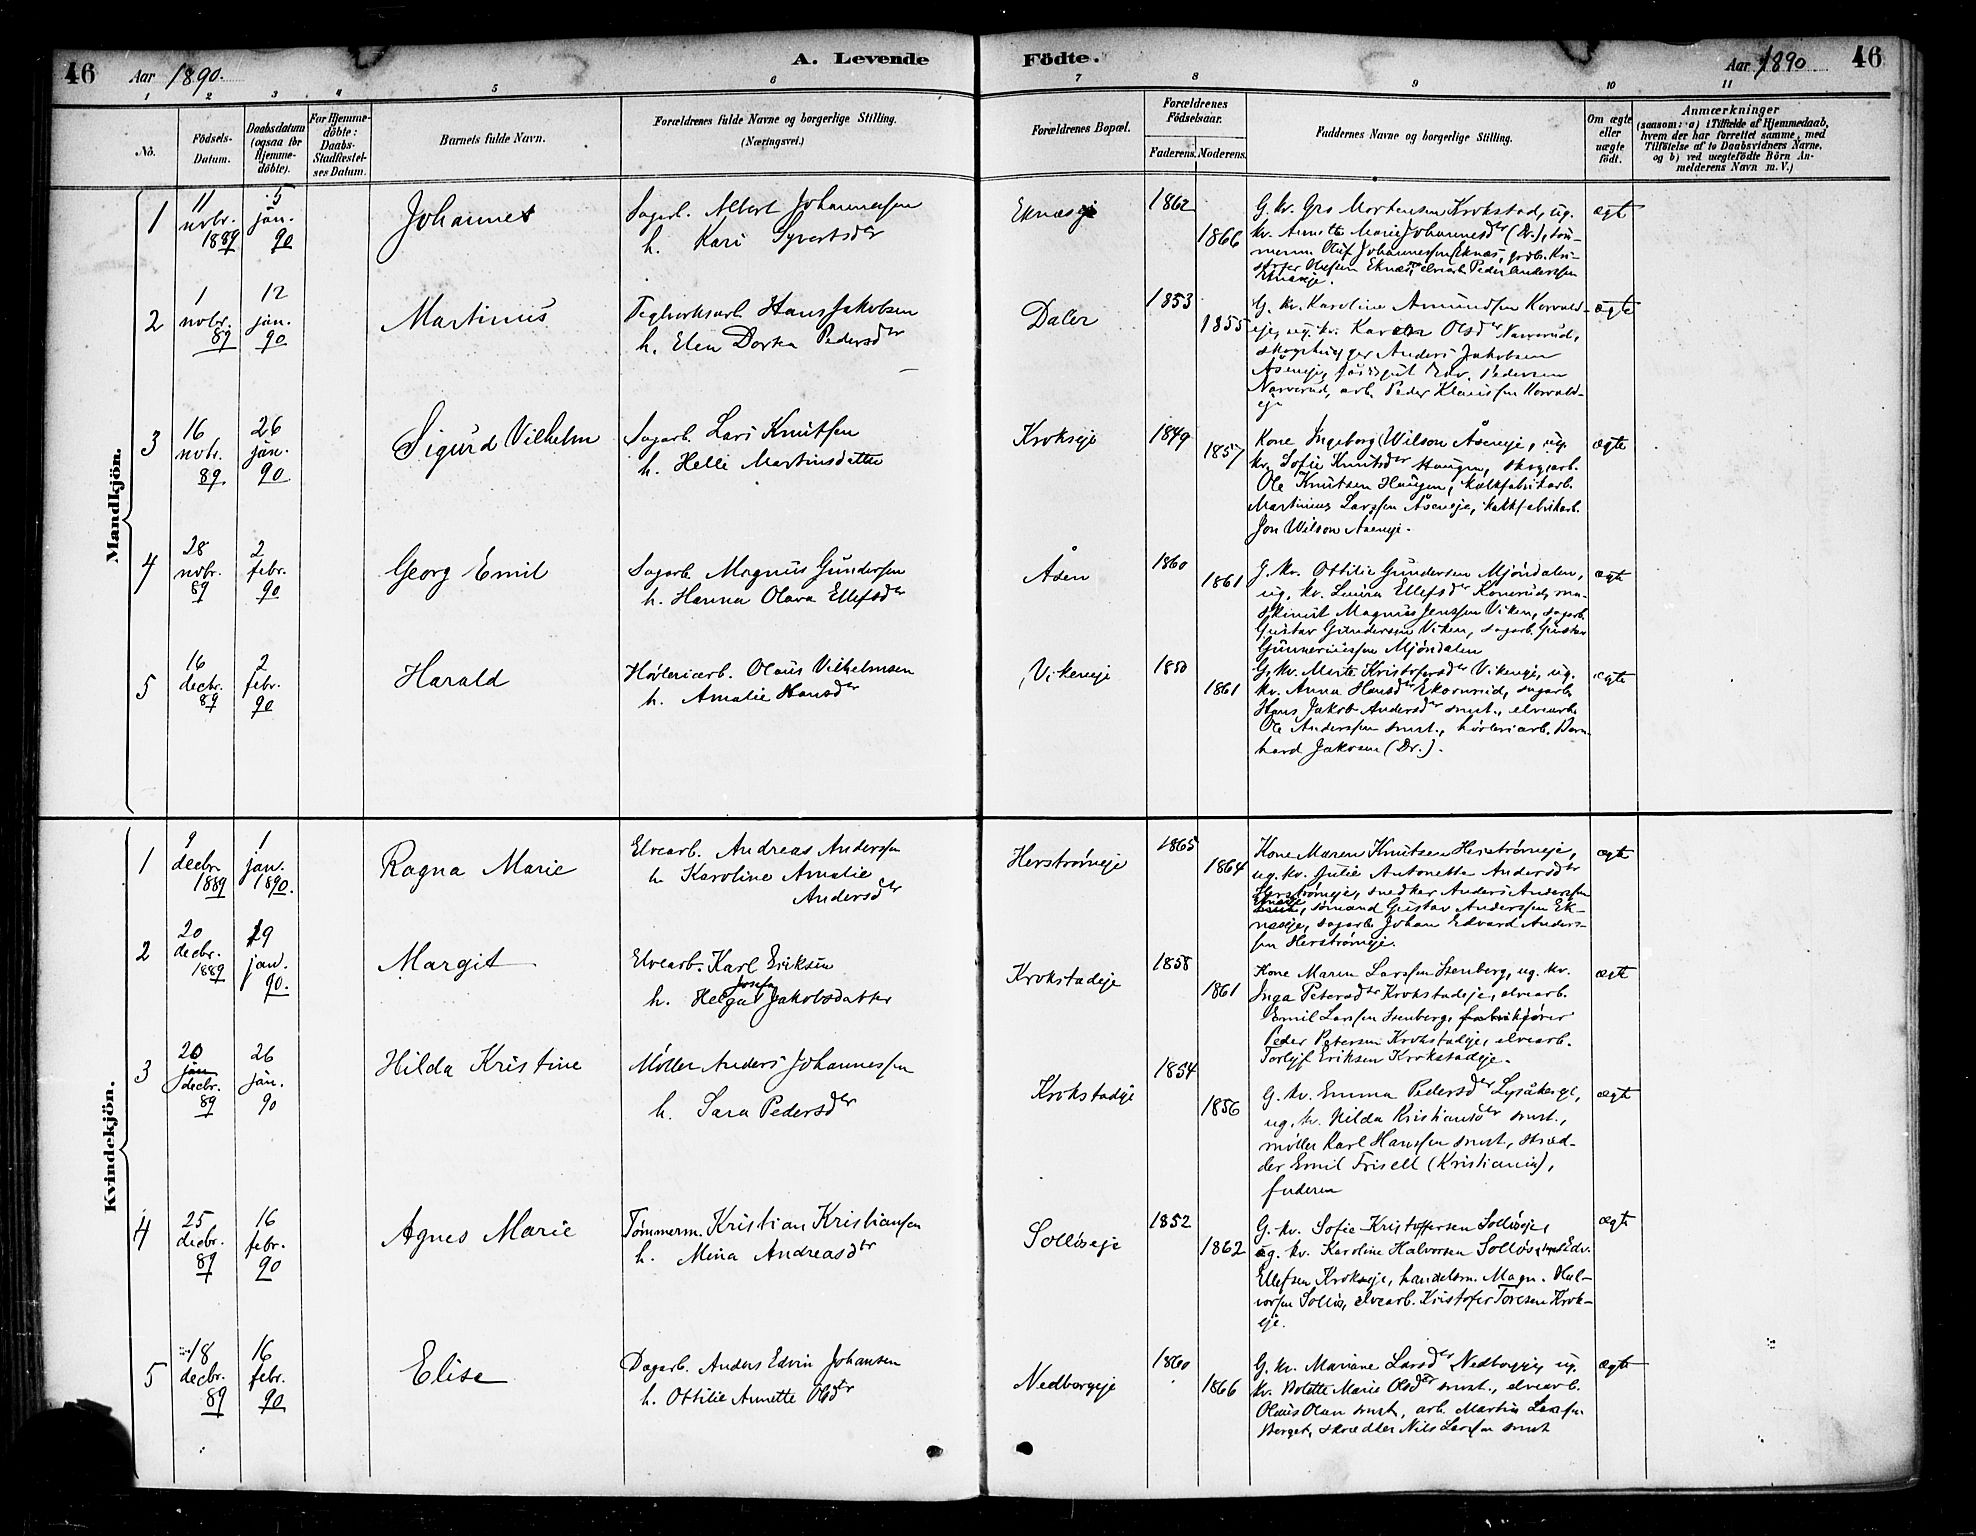 46 Aar 1890. A. Levende Födte. Aar 1890 46
1 2 3 4 5 6 7 8 9 10 11
No. Födsels-Datum. Daabsdatum (ogsaa for Hjemme-döbte). For Hjemme-döbte: Daabs-Stadfæstel-ses Datum. Barnets fulde Navn. Forældrenes fulde Navne og borgerlige Stilling. (Næringsvei.) Forældrenes Bopæl. Forældrenes Födselsaar. Faderens. Moderens. Faddernes Navne og borgerlige Stilling. Om ægte eller uægte födt. Anmærkninger
(saasom: a) i Tilfælde af Hjemmedaab, hvem der har forrettet samme, med Tilföielse af to Daabsvidners Navne, og b) ved uægtefödte Börn An-melderens Navn m. V.)
Mandkjön.
1 11 novbr. 1889 5 jan. 90 Johannes
Sagarb. Albert Johannessen
h. Kari Syvertsdtr
Eknæseje 1862 1866
G. kv. Gro Mortensen Krokstad, ug.
kv. Annette Marie Johannesdtr (Dr.), töm-
merm. Oluf Johannessen Eknæs, gdbr. Kri-
stofer Olessen Eknæs, elvearb. Peder Anderssen
Eknæseje.
ægte
2 1 novbr. 89 12 jan. 90 Martinus
Teglverksarb. Hans Jakobsen
h. Elen Dortea Pedersdtr
Daler 1853 1855
G. kv. Karoline Amundsen Korvald-
eje, ug. kv. Karen Olsdtr Narverud,
skoghugger Anders Jakobsen
Åseneje, Edv. Pedersen
Narverud, arb. Peder Klaussen Korvald-
eje
ægte
3 16 novb. 89 26 jan. 90 Sigurd Vilhelm
Sagarb. Lars Knutsen
h. Helle Martinsdatter
Krokseje 1849 1857
Kone Ingeborg Wilson Åseneje, ug.
kv. Sofie Knutsdtr Haugen, skogarb.
Ole Knutsen Haugen, kalkfabrikarb.
Martinius Larssen Åseneje, kalkfabrikarb.
Jon Wilson Åseneje.
ægte
4 28 novbr. 89 2 febr. 90 Georg Emil
Sagarb. Magnus Gundersen
h. Hanna Olava Ellefsdtr
Åsen 1860 1861
G. kv. Ottilie Gundersen Mjöndalen,
ug. kv. Lovisa Ellefsdtr Konerud, ma-
skinist Magnus Jenssen Viken, sagarb.
Gustav Gundersen Viken, sagarb. Gustav
Gunneriussen Mjöndalen
ægte
5 16 decbr. 89 2 febr. 90 Harald
Høvleriarb. Olaus Vilhelmsen
h. Amalie Hansdtr
Vikeneje 1850 1861
G. kv. Merte Kristofersdtr Vikeneje, ug.
kv. Anna Hansdtr Ekornrud, sagarb.
Hans Jakob Andersdtr smst., elvearb.
Ole Anderssen smst., høvleriarb. Bern-
hard Jakobsen (Dr.).
ægte
Kvindekjön.
1 9 decbr. 1889 1 jan. 1890. Ragna Marie
Elvearb. Andreas Anderssen
h. Karoline Amalie
Andersdtr
Herstrømeje 1865 1864
Kone Maren Knutsen Herstrømeje,
ug. kv. Julie Antonette Andersdtr
Herstrømeje, snedker Anders Anderssen
Eknæseje, sømand Gustav Anderssen Ek-
næseje, sagarb. Johan Edvard Anders-
sen Herstrømeje.
ægte
2 20 decbr. 1889 19 jan. 90. Margit
Elvearb. Karl Eriksen
h. Helga Josefa Jakobsdatter
Krokstadeje 1858 1861
Kone Maren Larssen Stenberg, ug. kv.
Inga Petersdtr Krokstadeje, elvearb.
Emil Larssen Stenberg,
Peder Petersen Krokstadeje, elvearb.
Torleif Eriksen Krokstadeje.
ægte
3 20 jan decbr. 89 26 jan. 90 Hilda Kristine
Møller Anders Johannessen
h. Sara Pedersdtr
Krokstadeje 1854 1856
G. kv. Emma Pedersdtr Lysåkereje,
ug. kv. Hilda Kristiansdtr smst.,
møller Karl Hanssen smst., skræd-
der Emil Frisell (Kristiania),
faderen
ægte
4 25 decbr. 89 16 febr. 90 Agnes Marie
Tømmerm. Kristian Kristiansen
h. Mina Andreasdtr
Solløseje 1852 1862
G. kv. Sofie Kristoffersen Solløseje,
ug. kv. Karoline Halvorsen Solløs, Edv.
Ellefsen Krokseje, handelsm. Magn. Hal-
vorsen Solløs, elvearb. Kristofer Toresen Krok-
eje.
ægte
5 18 decbr. 89 16 febr. 90 Elise
Dagarb. Anders Edvin Johansen
h. Ottilie Annette Olsdtr
Nedborgeje 1860 1866
G. kv. Mariane Larsdtr Nedborgeje, ug.
kv. Bolette Marie Olsdtr smst., elvearb.
Olaus Olsen smst, arb. Martin Larssen
Berget, skrædder Nils Larssen smst
ægte